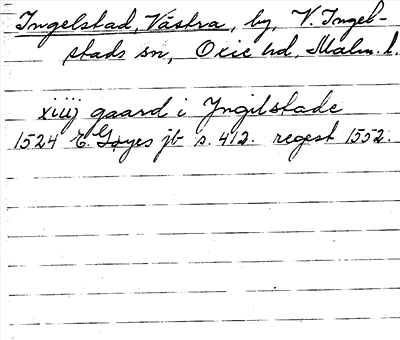 Ingelstad, Västra, by, V. Ingel-
stads sn, Oxie hd, Malm. l.
xiiij gaard i Yngilstade
1524 E. Gøyes jb s. 412. regest 1552.